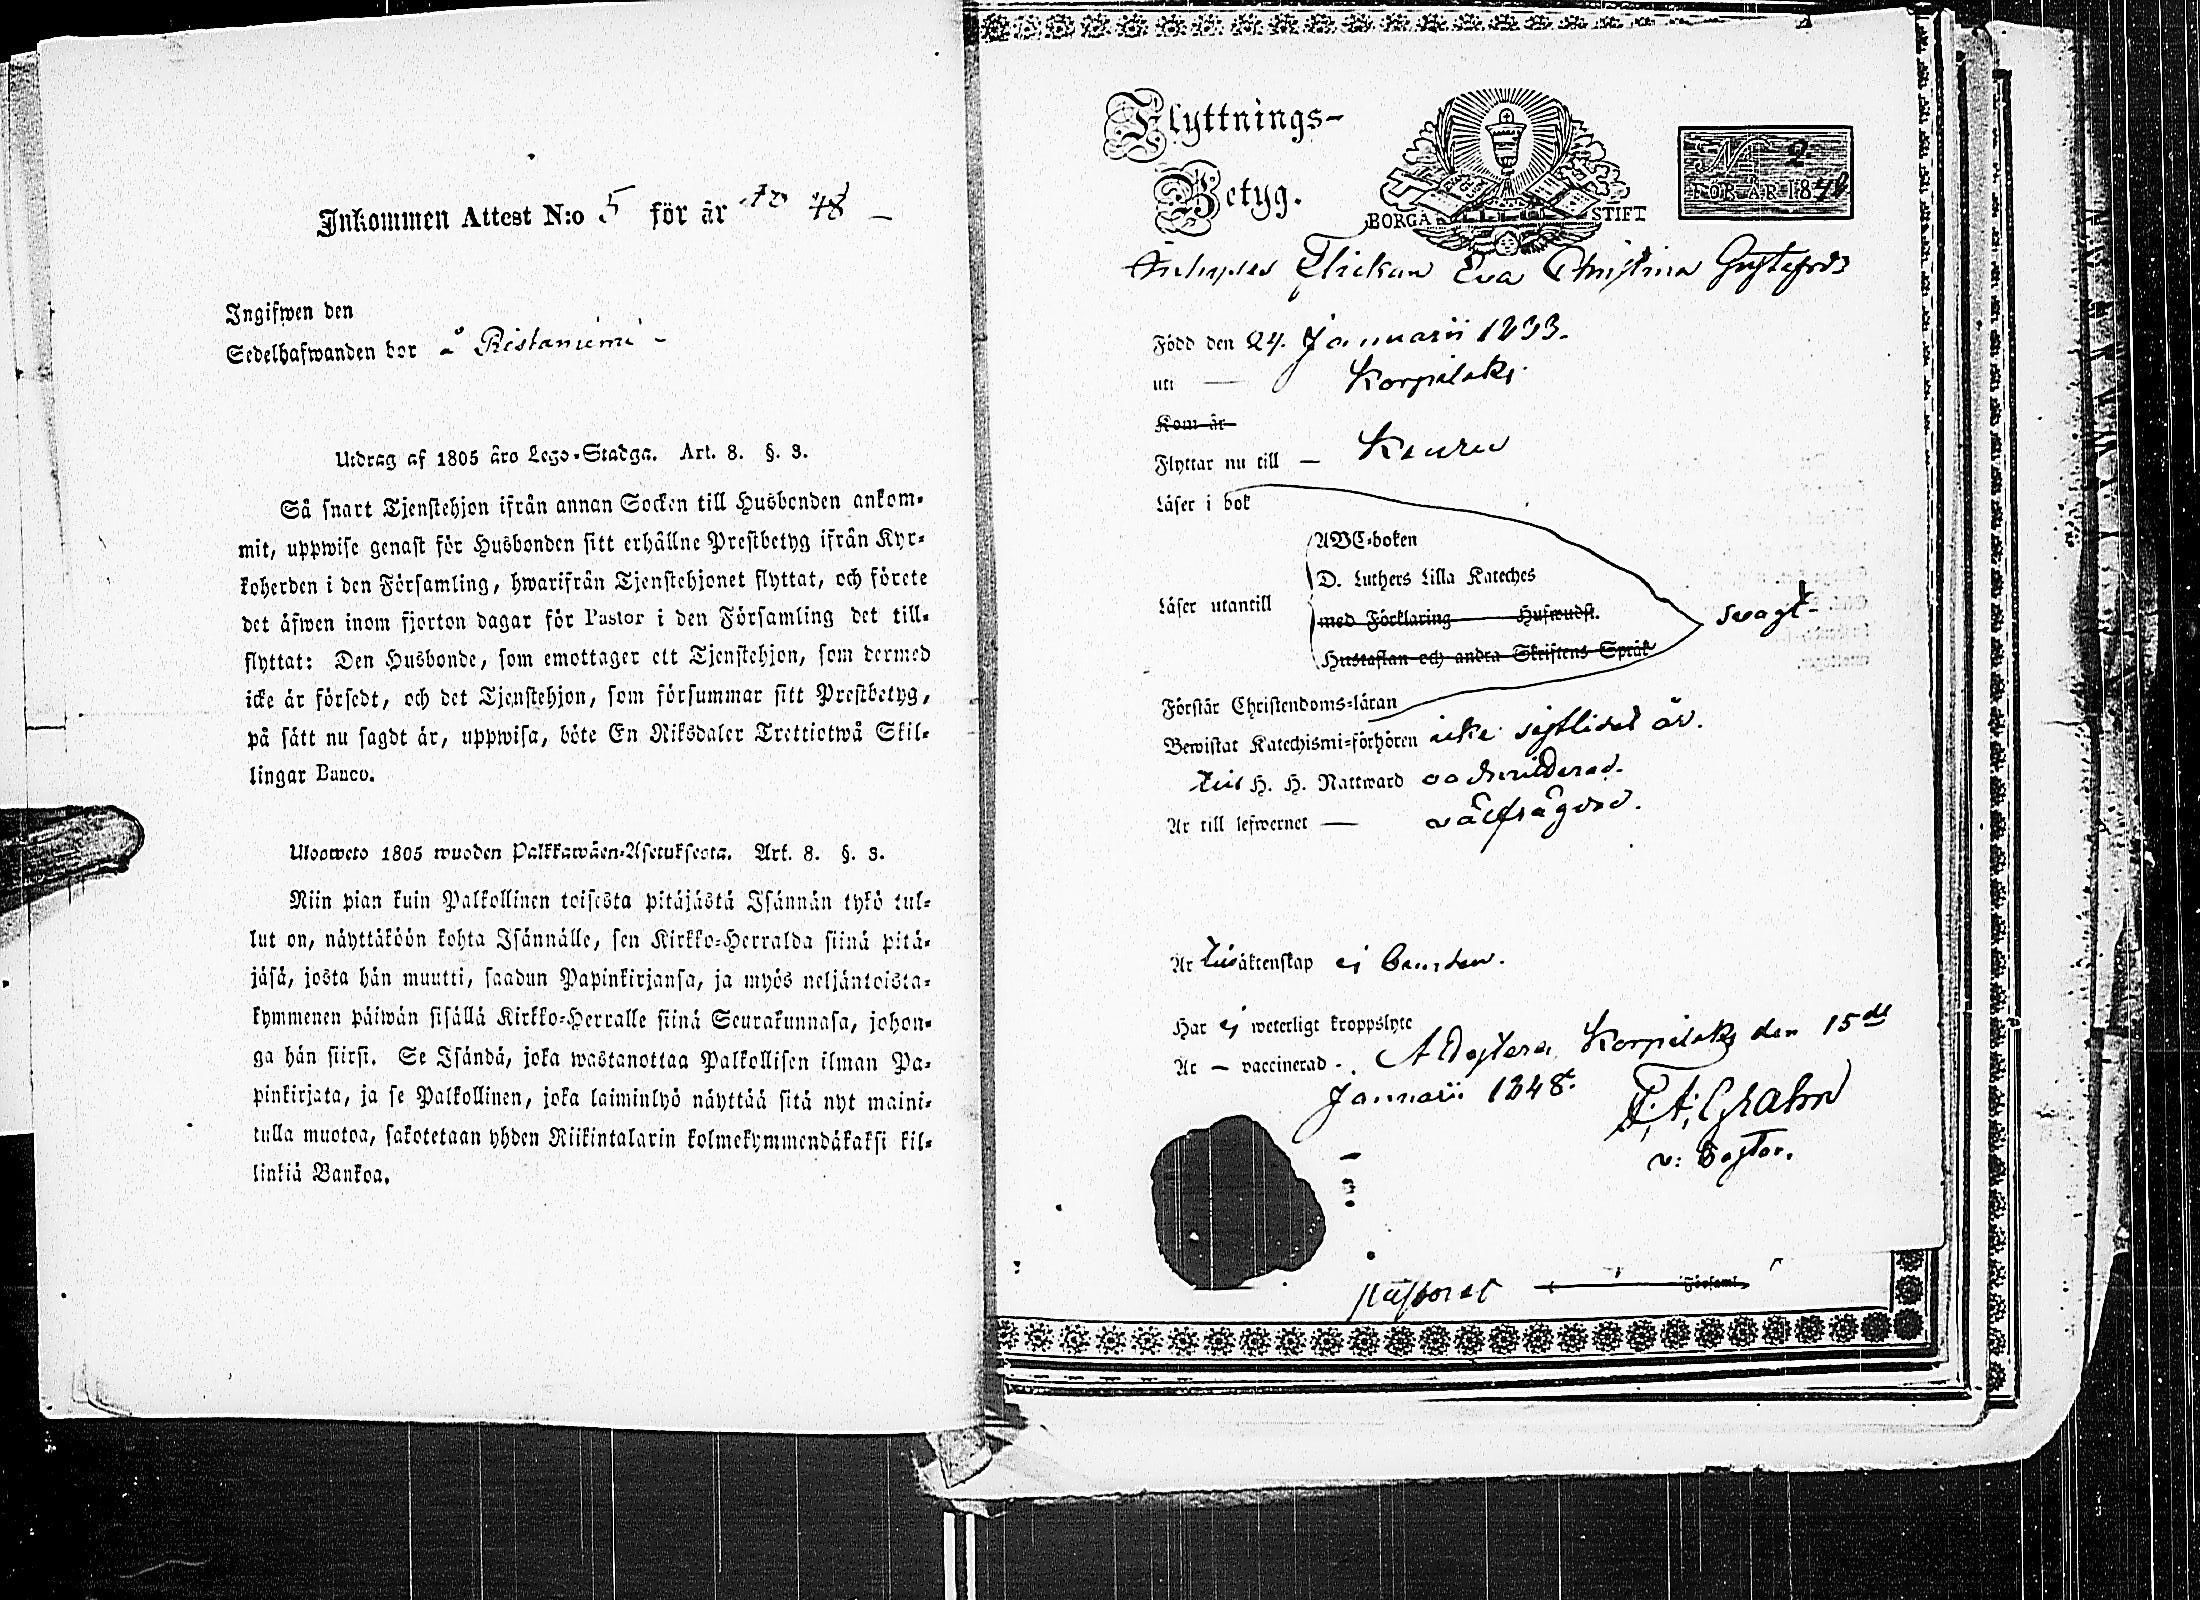 Inkommen Attest N:o 5 för år 48
Ingifwen den
Sedelhafwanden bor å Ristaniemi
Utdrag af 1805 års Lego-Stadga. Art. 8. §. 3.
Så snart Tjenstehjon ifrån annan Socken till Husbonden ankom-
mit, uppwise genast för Husbonden sitt erhållne Prestbetyg ifrån Kyr-
koherden i den Församling, hwarifrån Tjenstehjonet flyttat, och förete
det äfwen inom fjorton dagar för Pastor i den Församling det till-
flyttat: Den Husbonde, som emottager ett Tjenstehjon, som dermed
icke är försedt, och det Tjenstehjon, som försummar sitt Prestbetyg,
på sätt nu sagdt är, uppwisa, böte En Riksdaler Trettiotwå Skil-
lingar Banco.
Ulosweto 1805 wuoden Palkkawäen-Asetuksesta. Art. 8. §. 3.
Niin pian kuin Palkollinen toisesta pitäjästä Isännän tykö tul-
lut on, näyttäköön kohta Isännälle, sen Kirkko-Herralda siinä pitä-
jäsä, josta hän muutti, saadun Papinkirjansa, ja myös neljäntoista-
kymmenen päiwän sisällä Kirkko-Herralle siinä Seurakunnasa, johon-
ga hän siirsi. Se Isändä, joka wastanottaa Palkollisen ilman Pa-
pinkirjata, ja se Palkollinen, joka laiminlyö näyttää sitä nyt maini-
tulla muotoa, sakotetaan yhden Riikintalarin kolmekymmendäkaksi kil-
linkiä Bankoa.
Flyttnings-
Betyg.
BORGÅ STIFT
N 2
FÖR ÅR 1848
Flickan Eva Christina Gustafsd:r
Född den 24. Januarii 1833.
uti — Korpilaks
Kom år
Flyttar nu till — Keuru
Läser i bok
ABC-boken
D. Luthers Lilla Kateches
Läser utantill
med Förklaring Hufwudst.
Hustaflan och andra Skriftens Språk
svagt
Förstår Christendoms-läran
Bewistat Katechismi-förhören icke sistlidet år.
till H. H. Nattward oadmitterad.
Är till lefwernet — välfrägdad.
Är till äktenskap ej bunden.
Har ej weterligt kroppslyte
Är — vaccinerad. Attestera, Korpilaks den 15de
Januarii 1848.
F. A. Grahn
v: Pastor.
Församl.